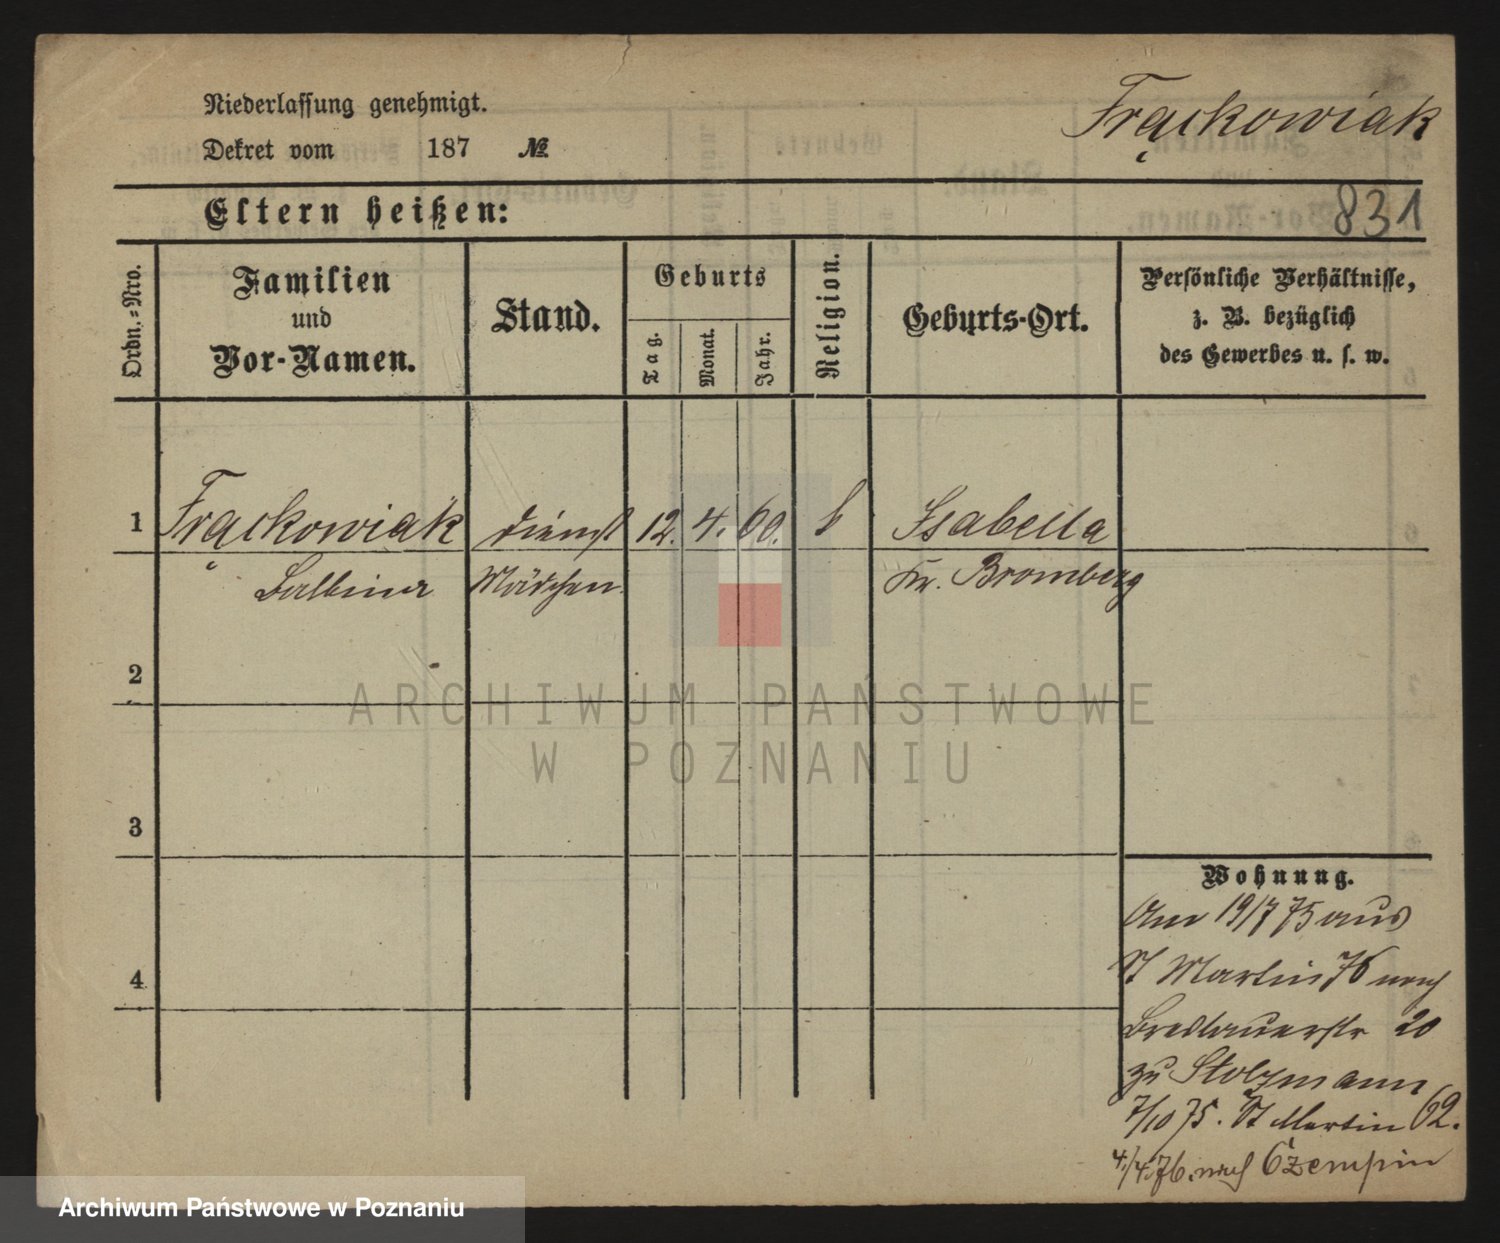 Niederlassung genehmigt.
Dekret vom 187 №
Frąckowiak
Eltern heißen:
831
Ordn.=Nro.
Familien
und
Vor-Namen.
Stand.
Geburts
Tag.
Monat.
Jahr.
Religion.
Geburts-Ort.
Persönliche Verhältnisse,
z. B. bezüglich
des Gewerbes u. s. w.
1 Frąckowiak dienst 12. 4. 60. Isabella
Balbina Mädchen. Kr. Bromberg
2
3
4
Wohnung.
Am 19/7 75 aus
St Martin 76 nach
Breslauerstr 20
zu Stolzmann
7/10 75. St Martin 62.
4/4. 76. nach Czempin
ARCHIWUM PAŃSTWOWE
W POZNANIU
Archiwum Państwowe w Poznaniu